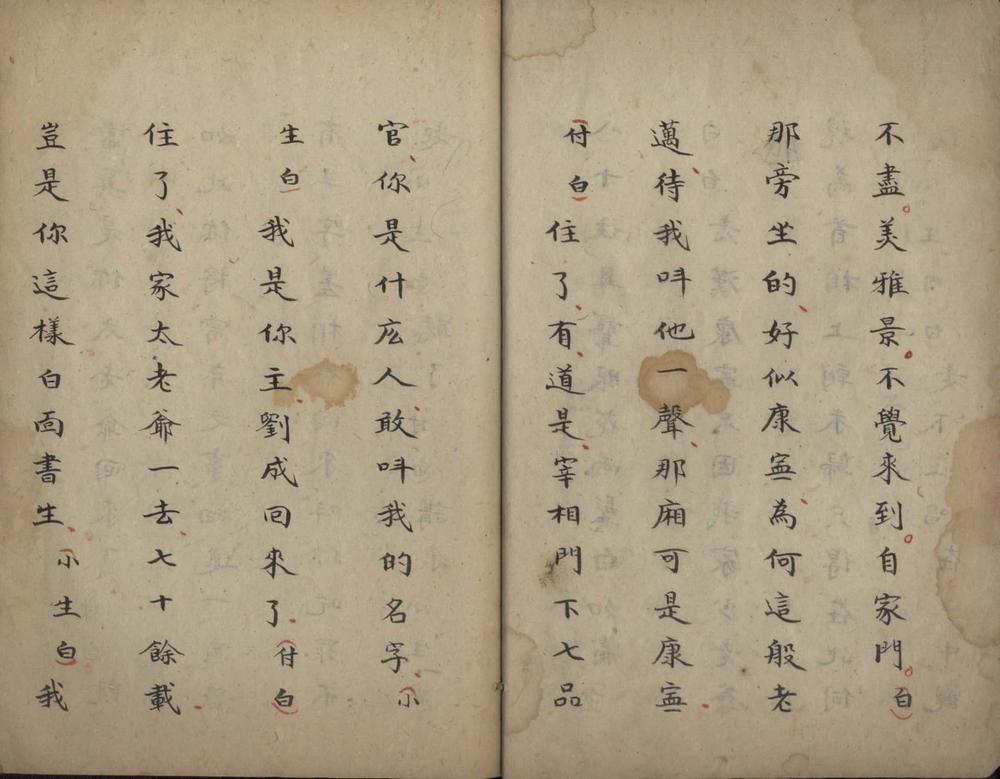 不盡美雅景不覺來到自家門白
那旁坐的好似康寍為何這般老
邁待我呌他一聲那廂可是康寍
付白住了有道是宰相門下七品
官你是什庅人敢呌我的名字小
生白我是你主劉成囘來了付白
住了我家太老爺一去七十餘載
豈是你這樣白面書生小生白我